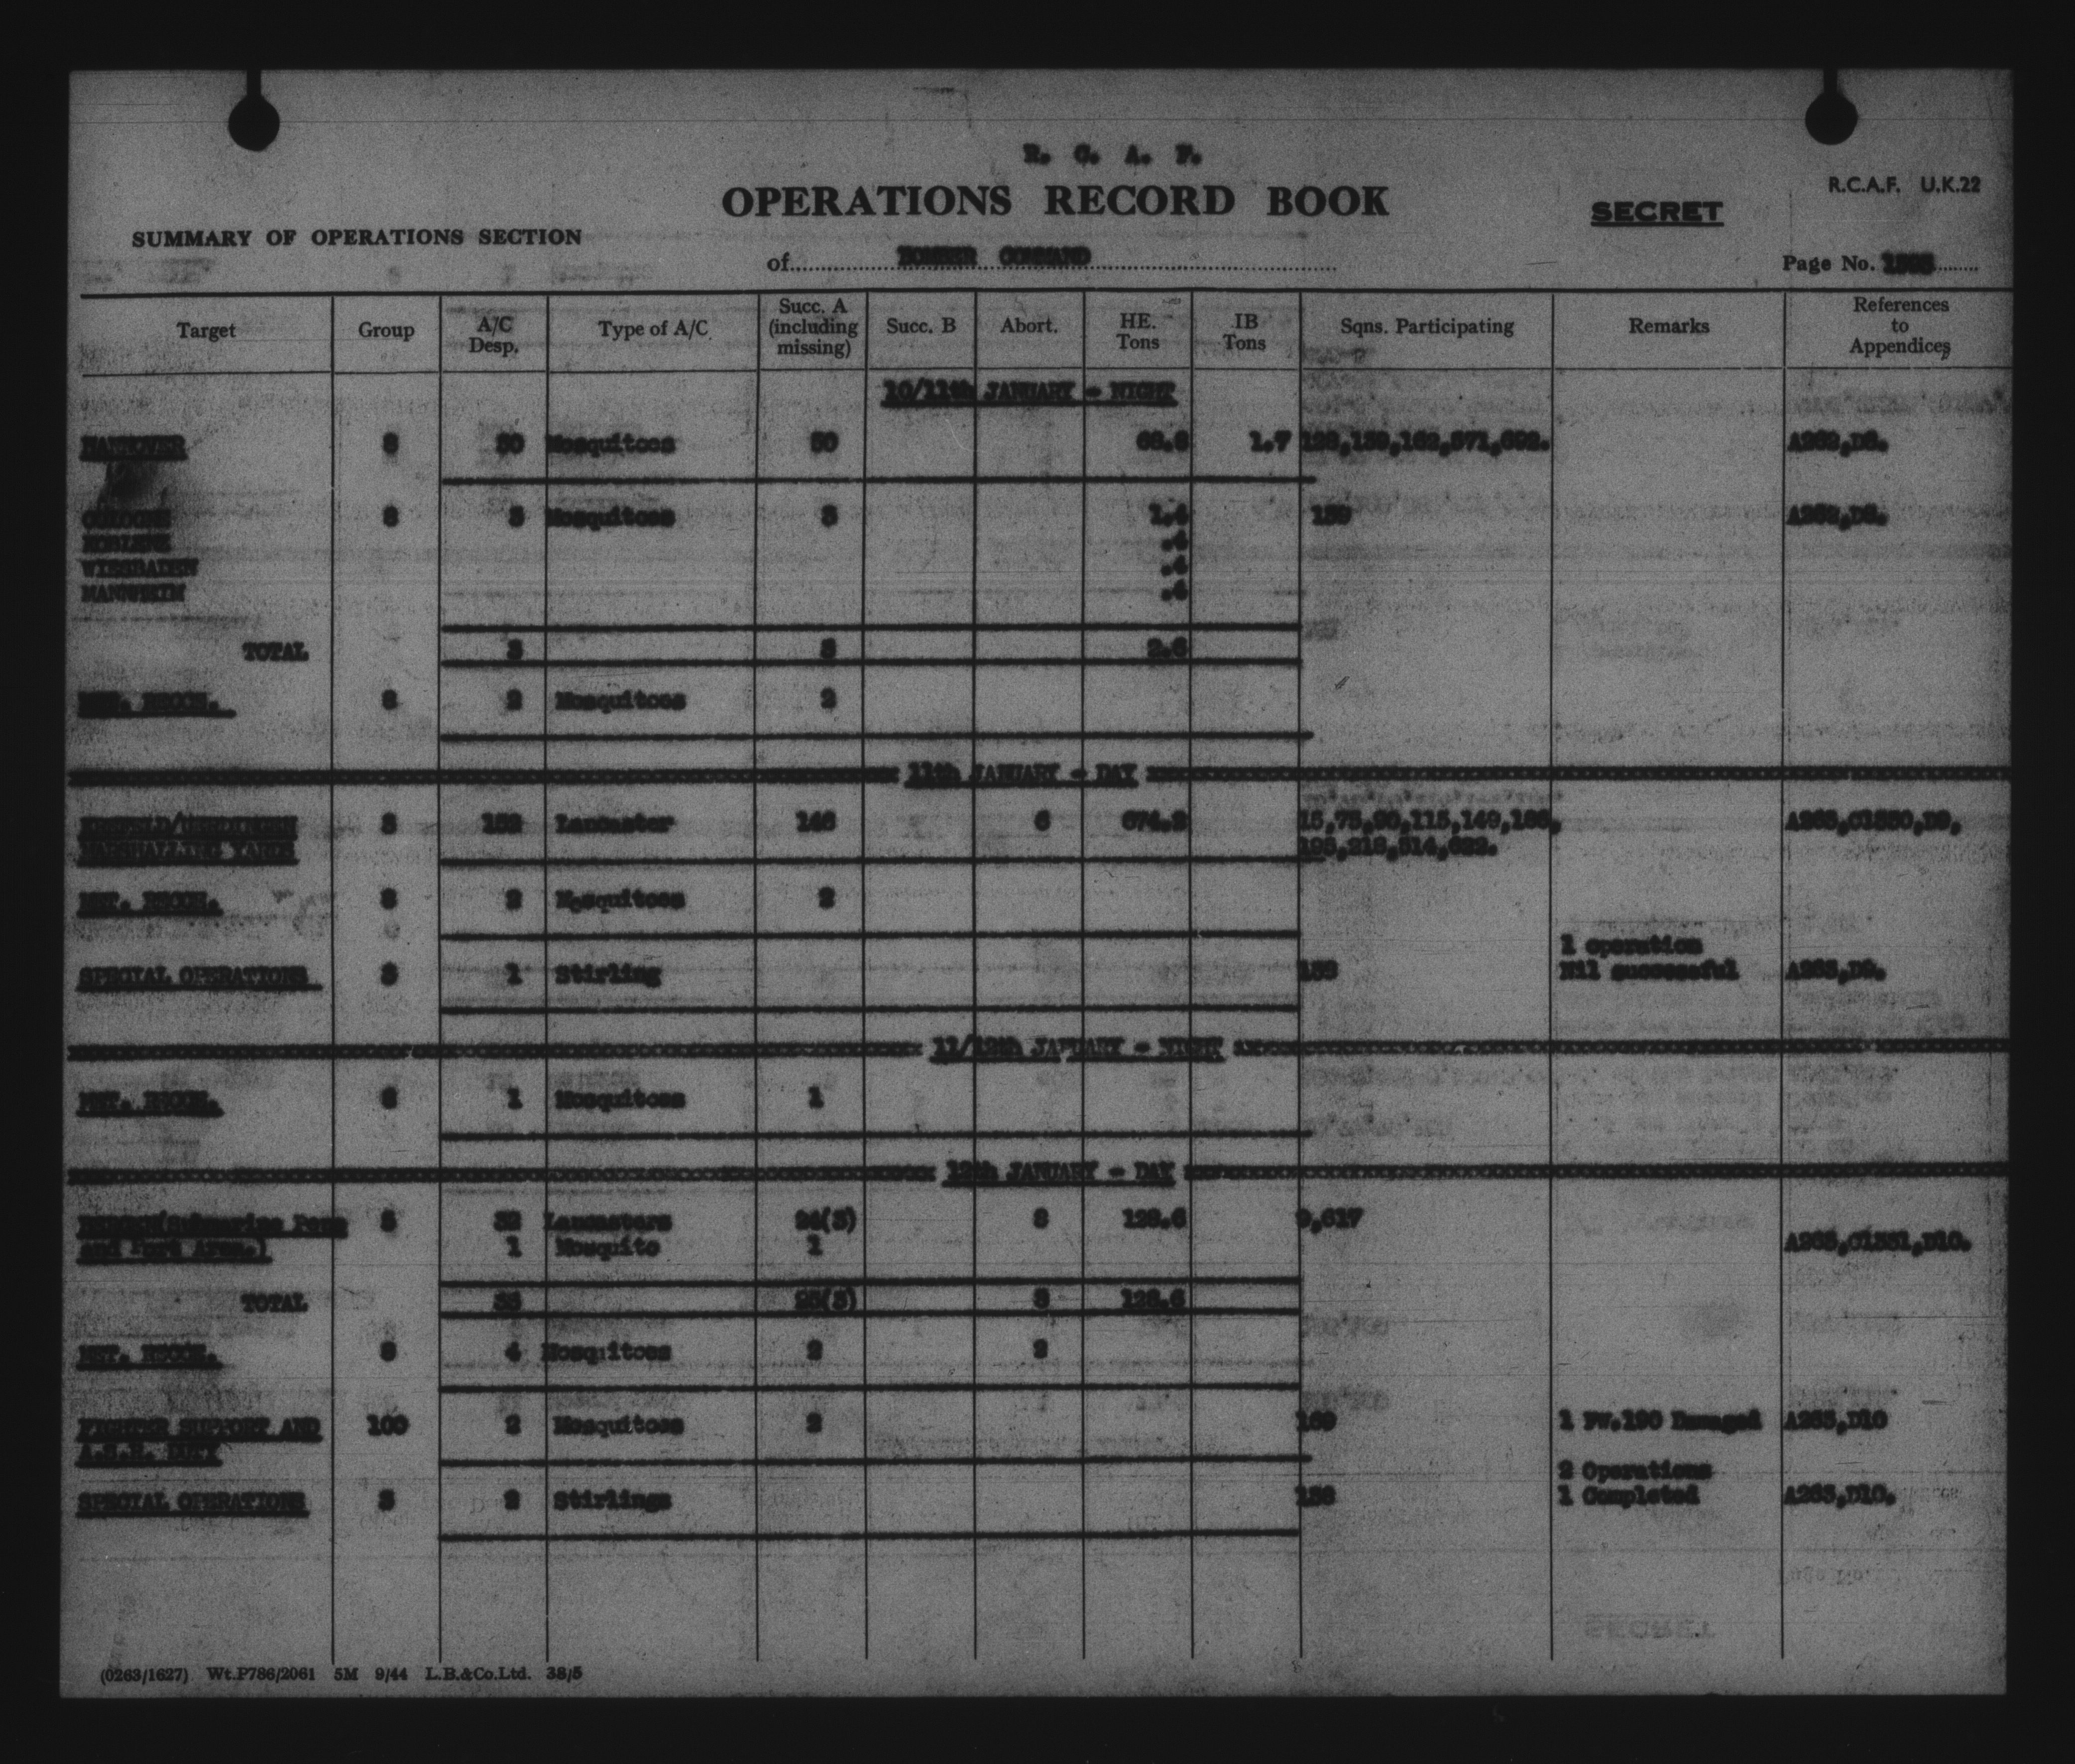 R. C. A. F.
OPERATIONS RECORD BOOK
R.C.A.F. U.K.22
SECRET
SUMMARY OF OPERATIONS SECTION
of BOMBER COMMAND
Page No.
Target Group A/C Desp. Type of A/C Succ. A (including missing) Succ. B Abort. HE. Tons IB Tons Sqns. Participating Remarks References to Appendices
10/11th JANUARY - NIGHT
HANNOVER 8 50 Mosquitoes 50 1.7 128,139,162,571,692. A262,D8.
COLOGNE 8 3 Mosquitoes 3 1.4 139 A262,D8.
KOBLENZ .4
WIESBADEN .4
MANNHEIM .4
TOTAL 3 3 2.6
MET. RECON. 8 2 Mosquitoes 2
11th JANUARY - DAY
KREFELD/UERDINGEN 3 152 Lancaster 146 6 15,75,90,115,149,186, A263,C1330,D9,
MARSHALLING YARDS 195,218,514,622.
MET. RECON. 8 2 Mosquitoes 2
1 operation
SPECIAL OPERATIONS 3 1 Stirling 138 Nil successful A263,D9.
11/12th JANUARY - NIGHT
MET. RECON. 8 1 Mosquitoes 1
12th JANUARY - DAY
BERGEN(Submarine Pens 5 32 Lancasters 24(3) 8 128.6 9,617
and Port Area.) 1 Mosquito 1 A263,C1331,D10.
TOTAL 33 25(3) 8 128.6
MET. RECON. 8 4 Mosquitoes 2 2
FIGHTER SUPPORT AND 100 2 Mosquitoes 2 169 1 FW.190 Damaged A263,D10
A.S.R. DUTY
2 Operations
SPECIAL OPERATIONS 3 2 Stirlings 138 1 Completed A263,D10.
(0263/1627) Wt.P786/2061 5M 9/44 L.B.&Co.Ltd. 38/5